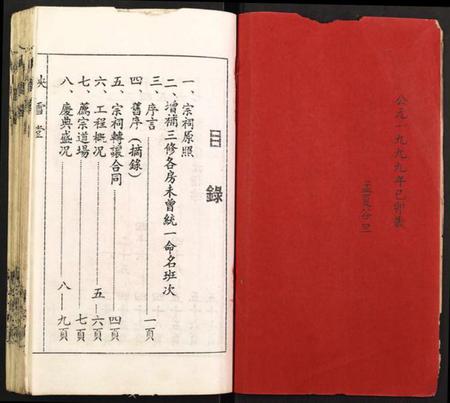 公元一九九九年己卯歲
孟夏谷旦
目錄
一、宗祠原照
二、增補三修各房未曾統一命名班次
三、序言 一頁
四、舊序(摘錄)
五、宗祠轉讓合同 四頁
六、工程概况 五—六頁
七、薦宗道場 七頁
八、慶典盛况 八—九頁
映雪堂